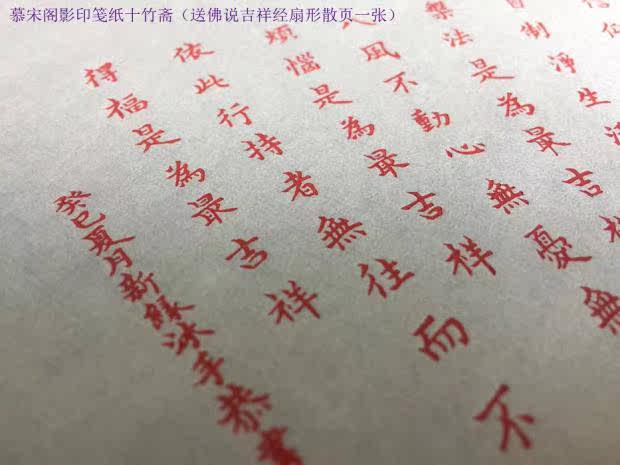 慕宋阁影印笺纸十竹斋（送佛说吉祥经扇形散页一张）
制淨生活
法是為最吉祥
風不動心無憂無
煩惱是為最吉祥
依此行持者無往而不
得福是為最吉祥
癸巳夏月新緣沐手恭書